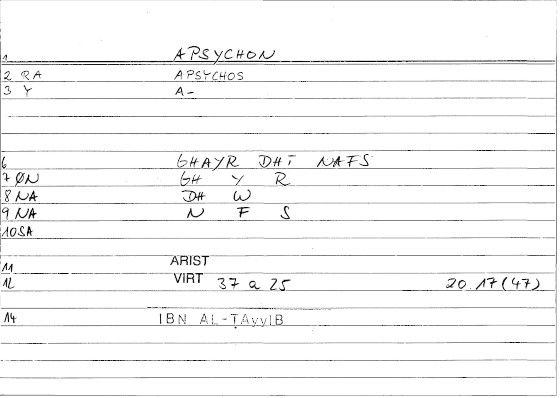 1 APSYCHON
2 RA APSYCHOS
3 Y A-
6 GHAYR DHI NAFS
7 ØN GH Y R
8 NA DH W
9 NA N F S
10 SA
11 ARIST
12 VIRT 37 a 25 20.17(47)
14 IBN AL-ṬAyyIB